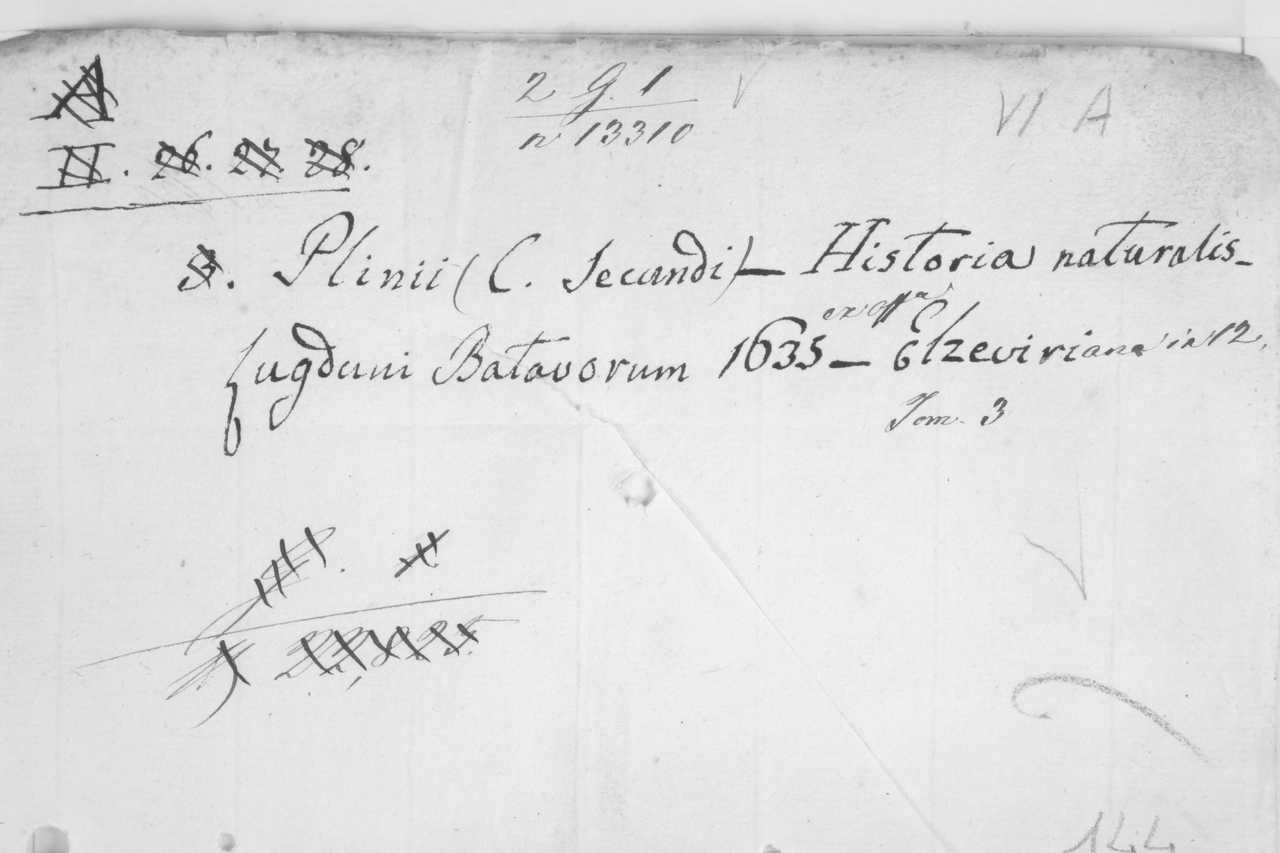 2 G. 1
n 13310
VI A
II. 26. 27. 28.
S. Plinii (C. Secundi) — Historia naturalis_
Lugduni Batavorum 1635 — ex offna Elzeviriana in 12.
Tom. 3
144